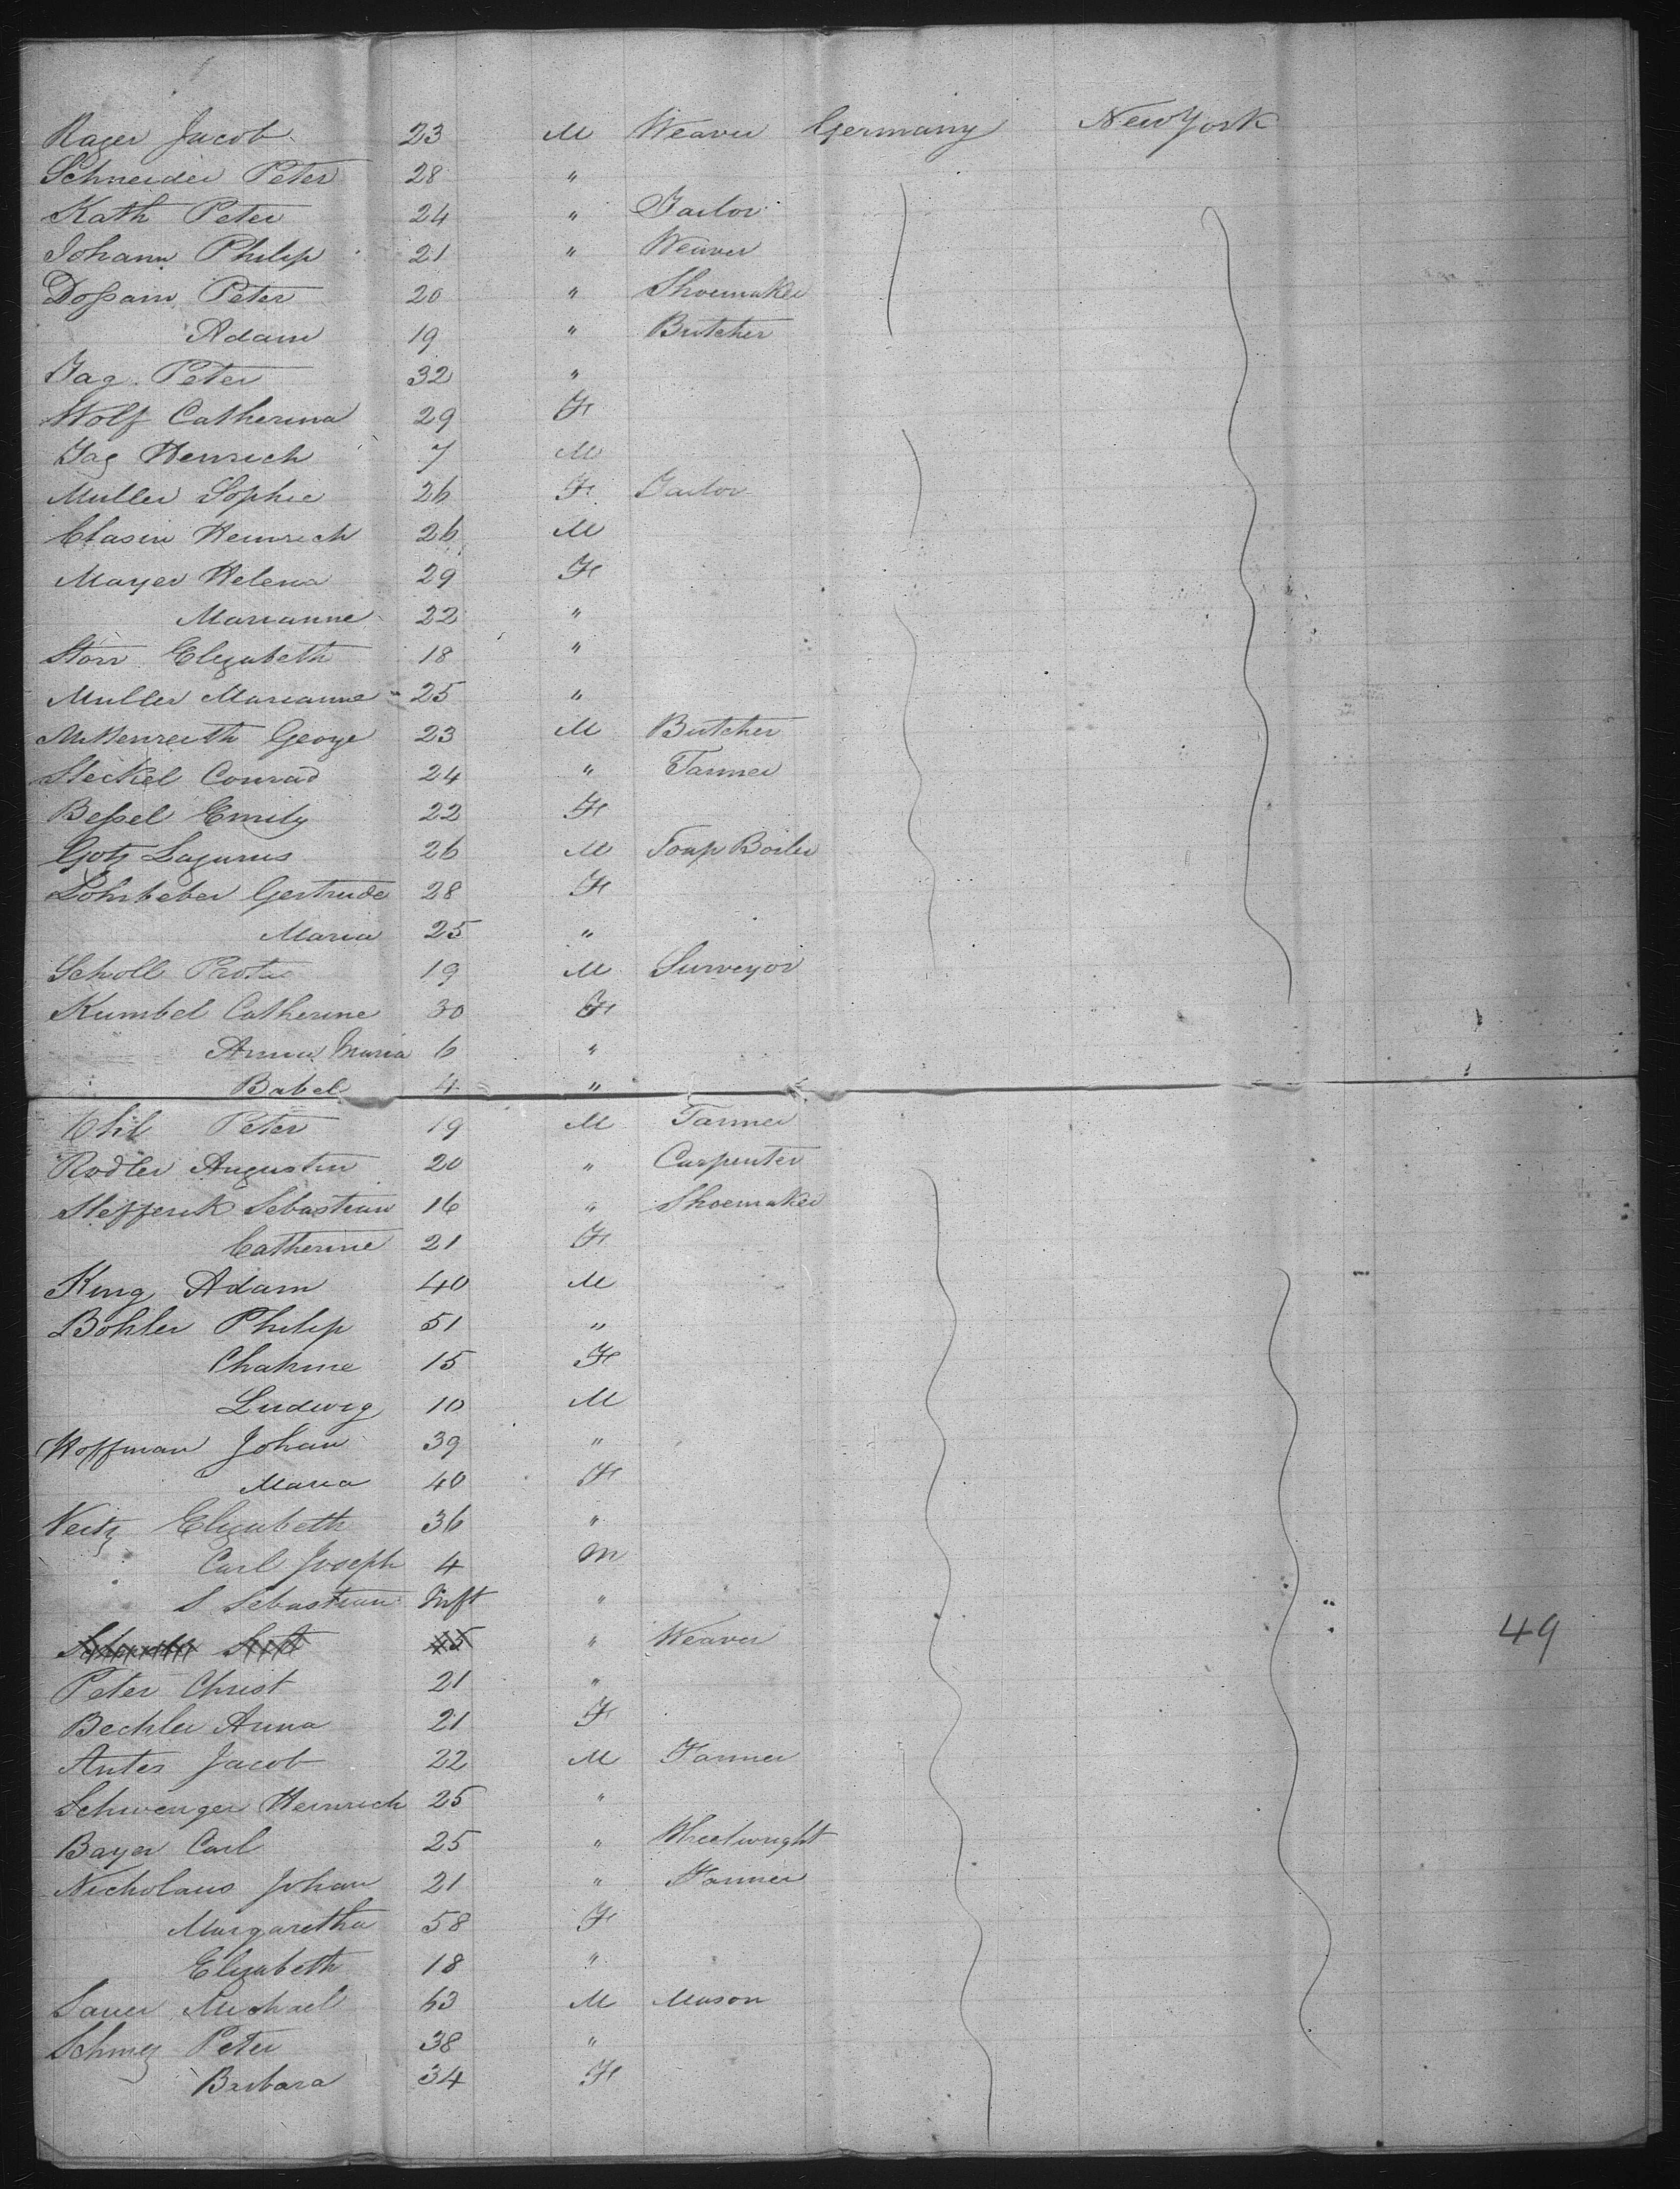 Rager Jacob 23 M Weaver Germany New York
Schneider Peter 28 "
Kath Peter 24 " Tailor
Johann Philip 21 " Weaver
Doßam Peter 20 " Shoemaker
Adam 19 " Butcher
Jag Peter 32 "
Wolf Catherina 29 F
Jag Henrich 7 M
Muller Sophie 26 F Tailor
Clasin Heinrich 26 M
Mayer Helena 29 F
Marianne 22 "
Storr Elizabeth 18 "
Muller Marianne 25 "
George 23 M Butcher
Steckel Conrad 24 " Farmer
Beßel Emily 22 F
Gotz Lazurus 26 M Soap Boiler
Gertrude 28 F
Maria 25 "
Scholl 19 M Surveyor
Kumbel Catherine 30 F
Anna Maria 6 "
Babel 4 "
Peter 19 M Farmer
Rodler Augustin 20 " Carpenter
Stefferik Sebastian 16 " Shoemaker
Catherine 21 F
King Adam 40 M
Bohler Philip 51 "
15 F
Ludwig 10 M
Hoffman Johan 39 "
Maria 40 F
Veitz Elizabeth 36 "
Carl Joseph 4 M
S Sebastian Inft "
" Weaver 49
Peter Christ 21 "
Bechler Anna 21 F
Antes Jacob 22 M Farmer
Schwenger Heinrich 25 "
Bayer Carl 25 " Wheelwright
Nicholaus Johan 21 " Farmer
Margaretha 58 F
Elizabeth 18 "
Sauer Michael 63 M Mason
Schmez Peter 38 "
Barbara 34 F